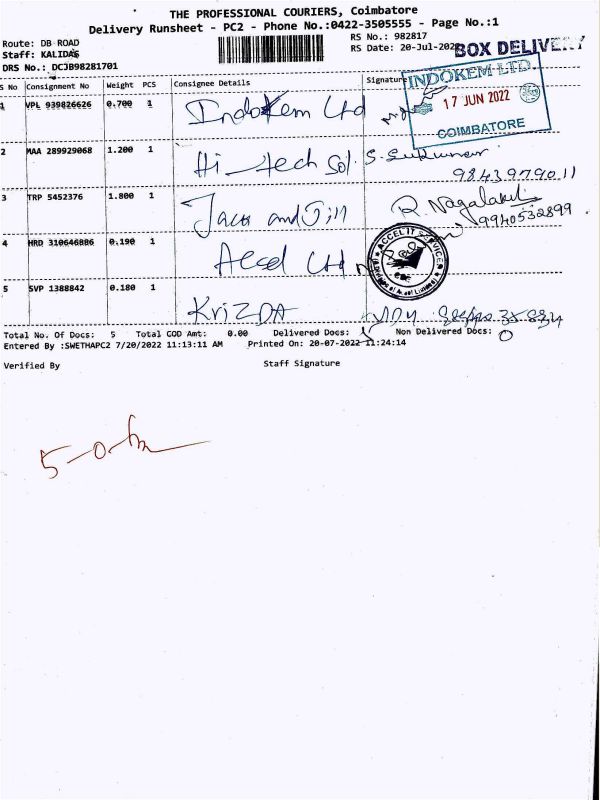 THE PROFESSIONAL COURIERS, Coimbatore
Delivery Runsheet - PC2 - Phone No.:0422-3505555 - Page No.:1
Route: DB ROAD
Staff: KALIDAS
DRS No.: DCJB98281701
RS No.: 982817
RS Date: 20-Jul-202
BOX DELIVERY
S No Consignment No Weight PCS Consignee Details Signature
INDOKEM LTD.
17 JUN 2022
COIMBATORE
1 VPL 939826626 0.700 1 Indokem Ltd
2 MAA 289929068 1.200 1 Hi-tech Sol S. Sukumar
9843979011
3 TRP 5452376 1.800 1 Jack and Jill R. Nagalakshmi
9940532899
4 HRD 310646886 0.190 1 Accel Ltd
ACCEL IT SERVICES
5 SVP 1388842 0.180 1 KriZDA
Total No. Of Docs: 5 Total COD Amt: 0.00 Delivered Docs: Non Delivered Docs: 0
Entered By :SWETHAPC2 7/20/2022 11:13:11 AM Printed On: 20-07-2022 11:24:14
Verified By Staff Signature
5-0-